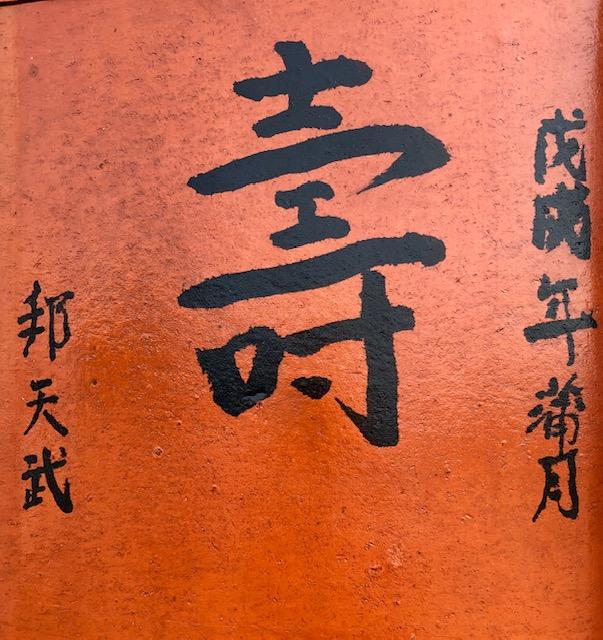 戊戌年蒲月
壽
邦天武